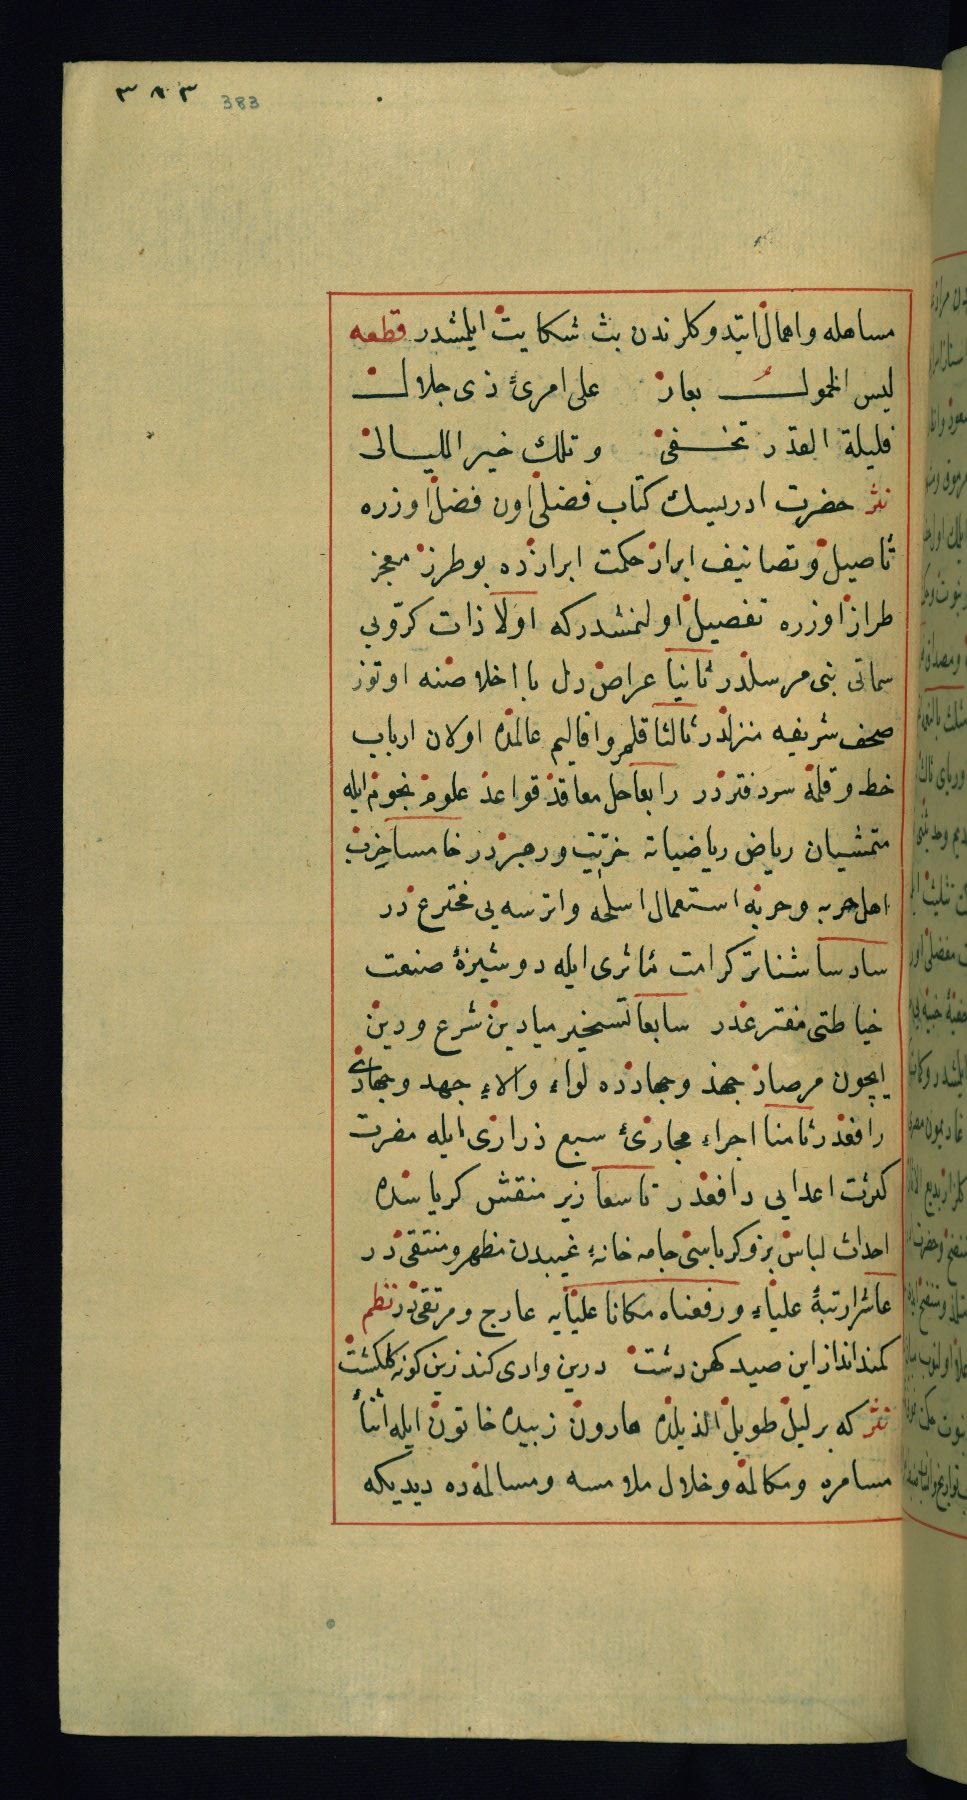 ٣٨٣ 383
مساهله و اهمال ايتدوكلرندن بث شكايت ايلمشدر قطعه
ليس الخمول بعار على امرئ ذى جلال
فليلة القدر تخفى وتلك خير الليالى
نثر حضرت ادريسك كتاب فضلى اون فضل اوزره
تاصيل و تصانيف ابراز حكمت ابرازده بو طرز معجز
طراز اوزره تفصيل اولنمشدركه اولا ذات كروبى
سماتى بنى مرسلدر ثانيا عراص دل با اخلاصنه اوتوز
صحف شريفه منزلدر ثالثا قلمرو اقاليم عالمده اولان ارباب
خط و قلمه سردفتردر رابعا حل معاقد قواعد علوم نجوم ايله
متمشيان رياض رياضياته خريت و رهبردر خامسا حزب
اهل حربه و حربه استعمال اسلحه و اترسه يى مخترعدر
سادسا شناتر كرامت مآثرى ايله دوشيزۀ صنعت
خياطتى مفترعدر سابعا تسخير ميادين شرع و دين
ايچون مرصاد جهد و جهادده لواء والاء جهد و جهادى
رافعدر ثامنا اجراء مجارئ سبع ذرارى ايله مضرت
كرئت اعدايى دافعدر تاسعا زير منقش كرياسنده
احداث لباس بز و كرباسى جامه خانۀ غيبدن مظهر و منتقىدر
عاشرا رتبۀ علياء و رفعناه مكانا عليايه عارج و مرتقىدر نظم
كمندانداز اين صيد كهن دشت درين وادى كند زين كونه كلكشت
نثر كه بر ليل طويل الذيلده هارون زبيده خاتون ايله اثنأ
مسامره و مكالمه و خلال ملامسه و مسالمه ده ديديكه